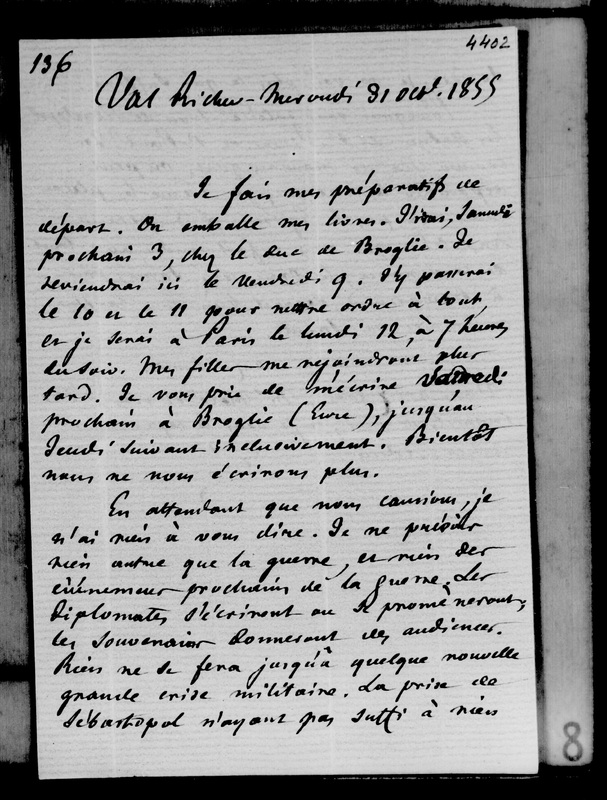 4402
136
Val Richer - Mercredi 31 Oct. 1855
Je fais mes préparatifs de
départ. On emballe mes livres. J'irai, Samedi
prochain 3, chez le duc de Broglie. Je
reviendrai ici le Vendredi 9. J'y passerai
le 10 et le 11 pour mettre ordre à tout,
et je serai à Paris le lundi 12, à 7 heures
du soir. Mes filles me rejoindront plus
tard. Je vous prie de m'écrire
prochain à Broglie (Eure), jusqu'au
Jeudi suivant inclusivement. Bientôt
nous ne nous écrirons plus.
En attendant que nous causions, je
n'ai rien à vous dire. Je ne prévois
rien autre que la guerre, et rien des
événemens prochains de la guerre. Les
diplomates s'écriront ou se promèneront;
les Souverains donneront des audiences.
Rien ne se fera jusqu'à quelque nouvelle
grande crise militaire. La prise de
Sébastopol n'ayant pas suffi à rien
8